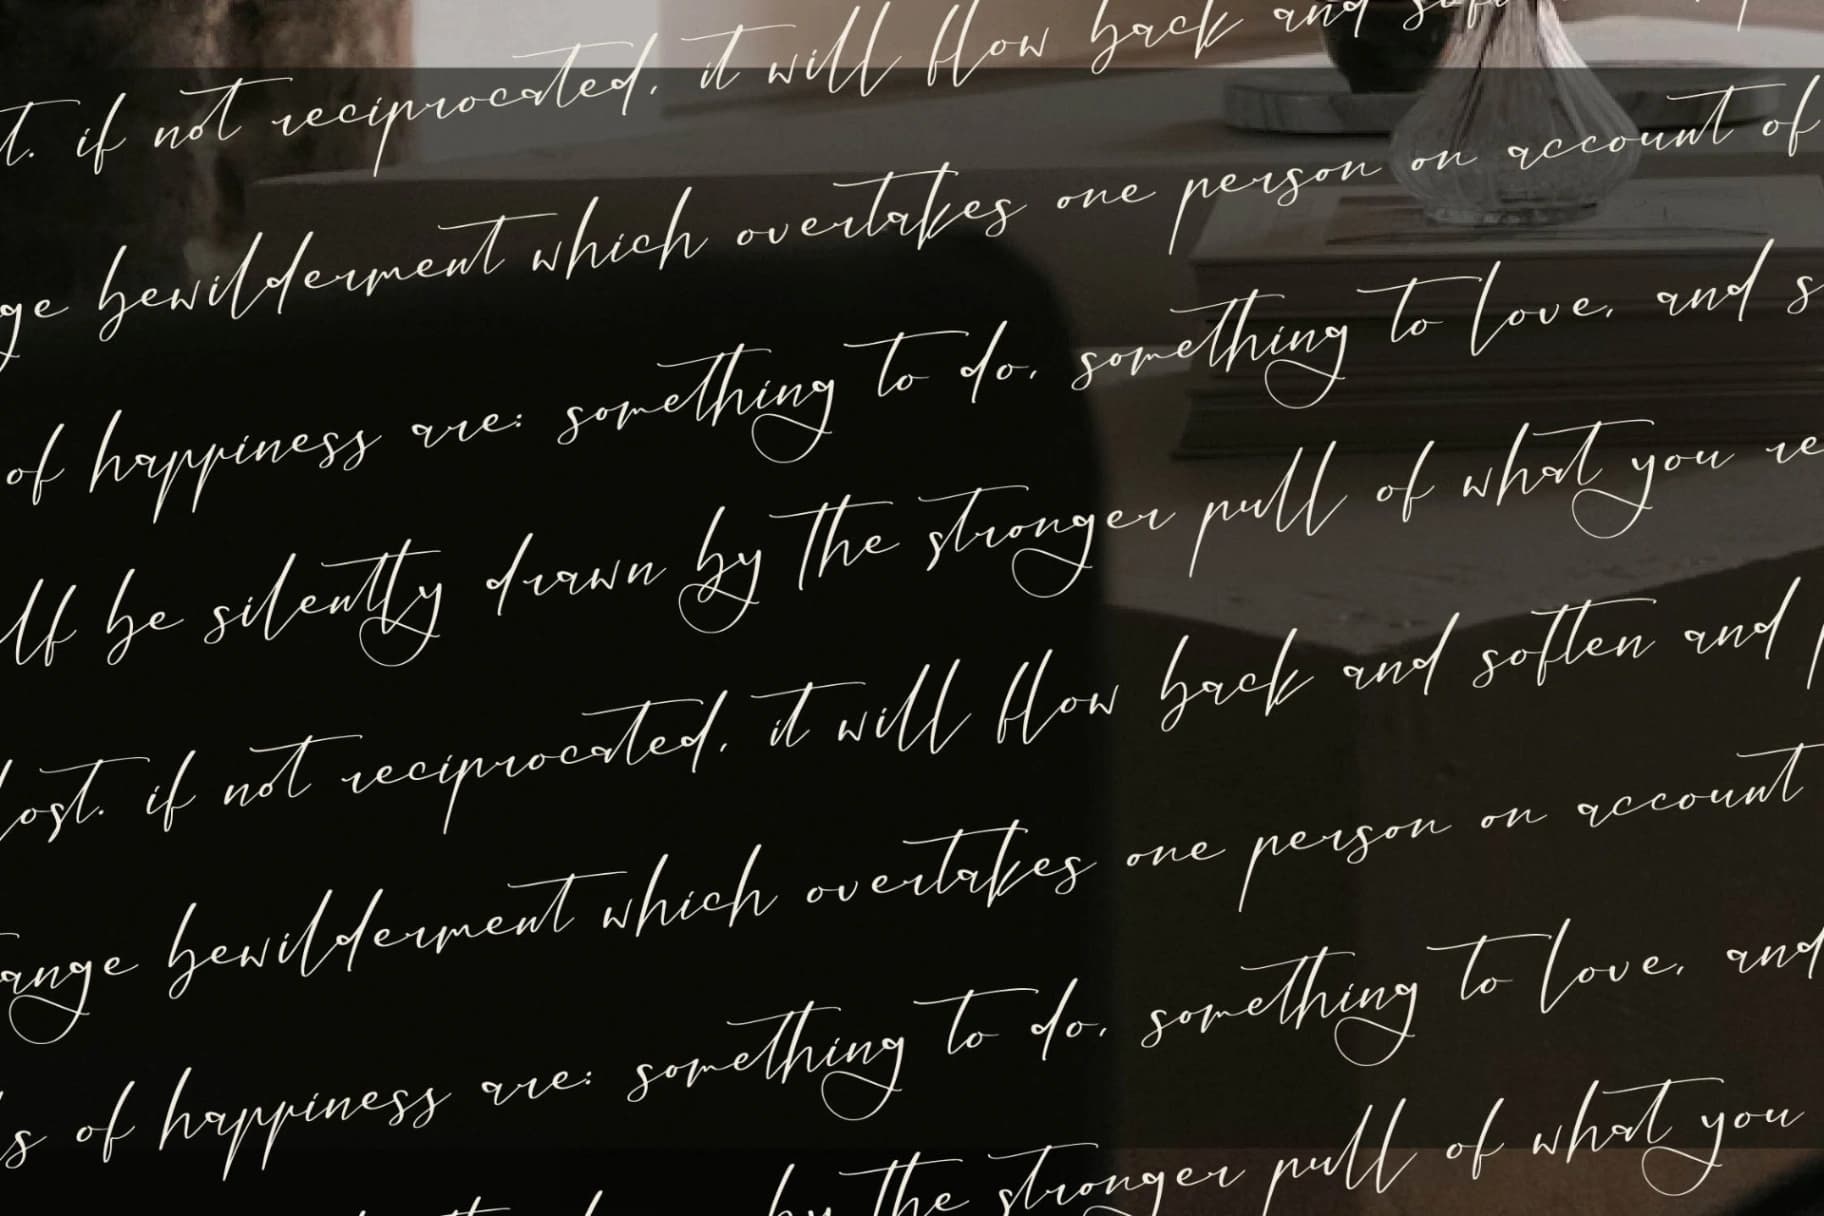 t. if not reciprocated, it will flow back and
ge bewilderment which overtakes one person on account of
of happiness are: something to do, something to love, and s
lf be silently drawn by the stronger pull of what you re
lost. if not reciprocated, it will flow back and soften and
ange bewilderment which overtakes one person on account
s of happiness are: something to do, something to love, and
by the stronger pull of what you